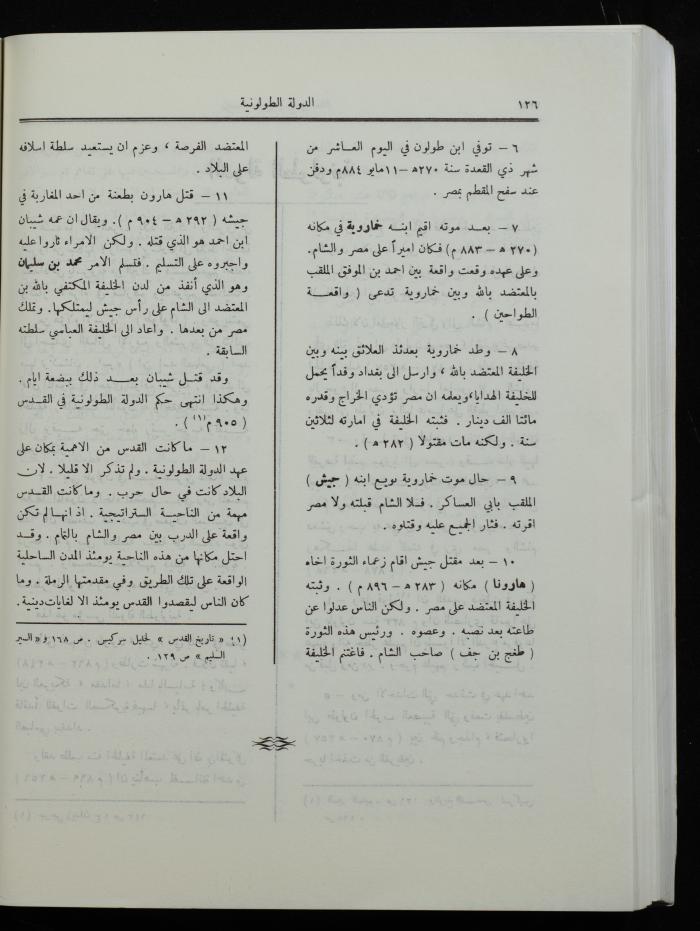 ١٢٦
الدولة الطولونية
٦ – توفي ابن طولون في اليوم العاشر من
شهر ذي القعدة سنة ٢٧٠ه – ١١مايو ٨٨٤م ودفن
عند سفح المقطم بمصر .
٧ – بعد موته اقيم ابنه خمارويه في مكانه
(٢٧٠ ه – ٨٨٣ م) فكان اميراً على مصر والشام.
وعلى عهده وقعت واقعة بين احمد بن الموفق الملقب
بالمعتضد بالله وبين خمارويه تدعى ( واقعة
الطواحين ) .
٨ – وطد خمارويه بعدئذ العلائق بينه وبين
الخليفة المعتضد بالله ، وارسل الى بغداد وفداً يحمل
للخليفة الهدايا،ويعلمه ان مصر تؤدي الخراج وقدره
مائتا الف دينار . فثبته الخليفة في امارته لثلاثين
سنة . ولكنه مات مقتولا ( ٢٨٢ ه ) .
٩ – حال موت خمارويه بويع ابنه ( جيش )
الملقب بابي العساكر . فلا الشام قبلته ولا مصر
اقرته . فثار الجميع عليه وقتلوه .
١٠ – بعد مقتل جيش اقام زعماء الثورة اخاه
( هارونا ) مكانه ( ٢٨٣ ه – ٨٩٦ م ) . وثبته
الخليفة المعتضد على مصر . ولكن الناس عدلوا عن
طاعته بعد نصبه . وعصوه . ورئيس هذه الثورة
( طغج بن جف ) صاحب الشام . فاغتنم الخليفة
المعتضد الفرصة ، وعزم ان يستعيد سلطة اسلافه
على البلاد .
١١ – قتل هارون بطعنة من احد المغاربة في
جيشه ( ٢٩٢ ه – ٩٠٤ م ) . ويقال ان عمه شيبان
ابن احمد هو الذي قتله . ولكن الامراء ثاروا عليه
واجبروه على التسليم . فتسلم الامر محمد بن سليمان
وهو الذي أنفذ من لدن الخليفة المكتفي بالله بن
المعتضد الى الشام على رأس جيش ليمتلكها. وتملك
مصر من بعدها . واعاد الى الخليفة العباسي سلطته
السابقة .
وقد قتل شيبان بعد ذلك ببضعة ايام .
وهكذا انتهى حكم الدولة الطولونية في القدس
( ٩٠٥ م(١) ) .
١٢ – ما كانت القدس من الاهمية بمكان على
عهد الدولة الطولونية . ولم تذكر الا قليلا . لان
البلاد كانت في حال حرب . وما كانت القدس
مهمة من الناحية الستراتيجية . اذ انها لم تكن
واقعة على الدرب بين مصر والشام بالتمام . وقد
احتل مكانها من هذه الناحية يومئذ المدن الساحلية
الواقعة على تلك الطريق وفي مقدمتها الرملة . وما
كان الناس ليقصدوا القدس يومئذ الا لغايات دينية .
(١) « تاريخ القدس » لخليل سركيس . ص ١٦٨ و« السير
السليم » ص ١٢٩ .